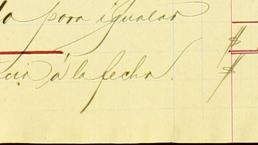 para igualar
á la fecha.